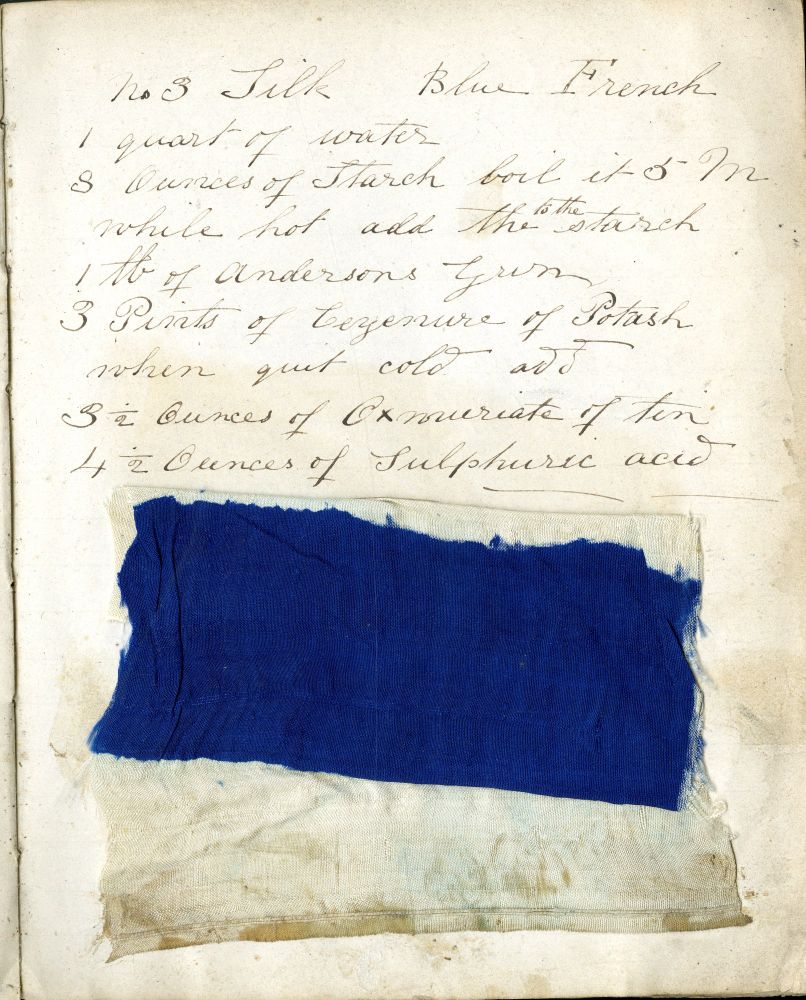 No 3 Silk Blue French
1 quart of water
3 Ounces of Starch boil it 5 M
while hot add the to the starch
1 lb of Andersons Gum
3 Pints of Ceyenure of Potash
when quit cold add
3 ½ Ounces of Oxmuriate of tin
4 ½ Ounces of Sulphuric acid